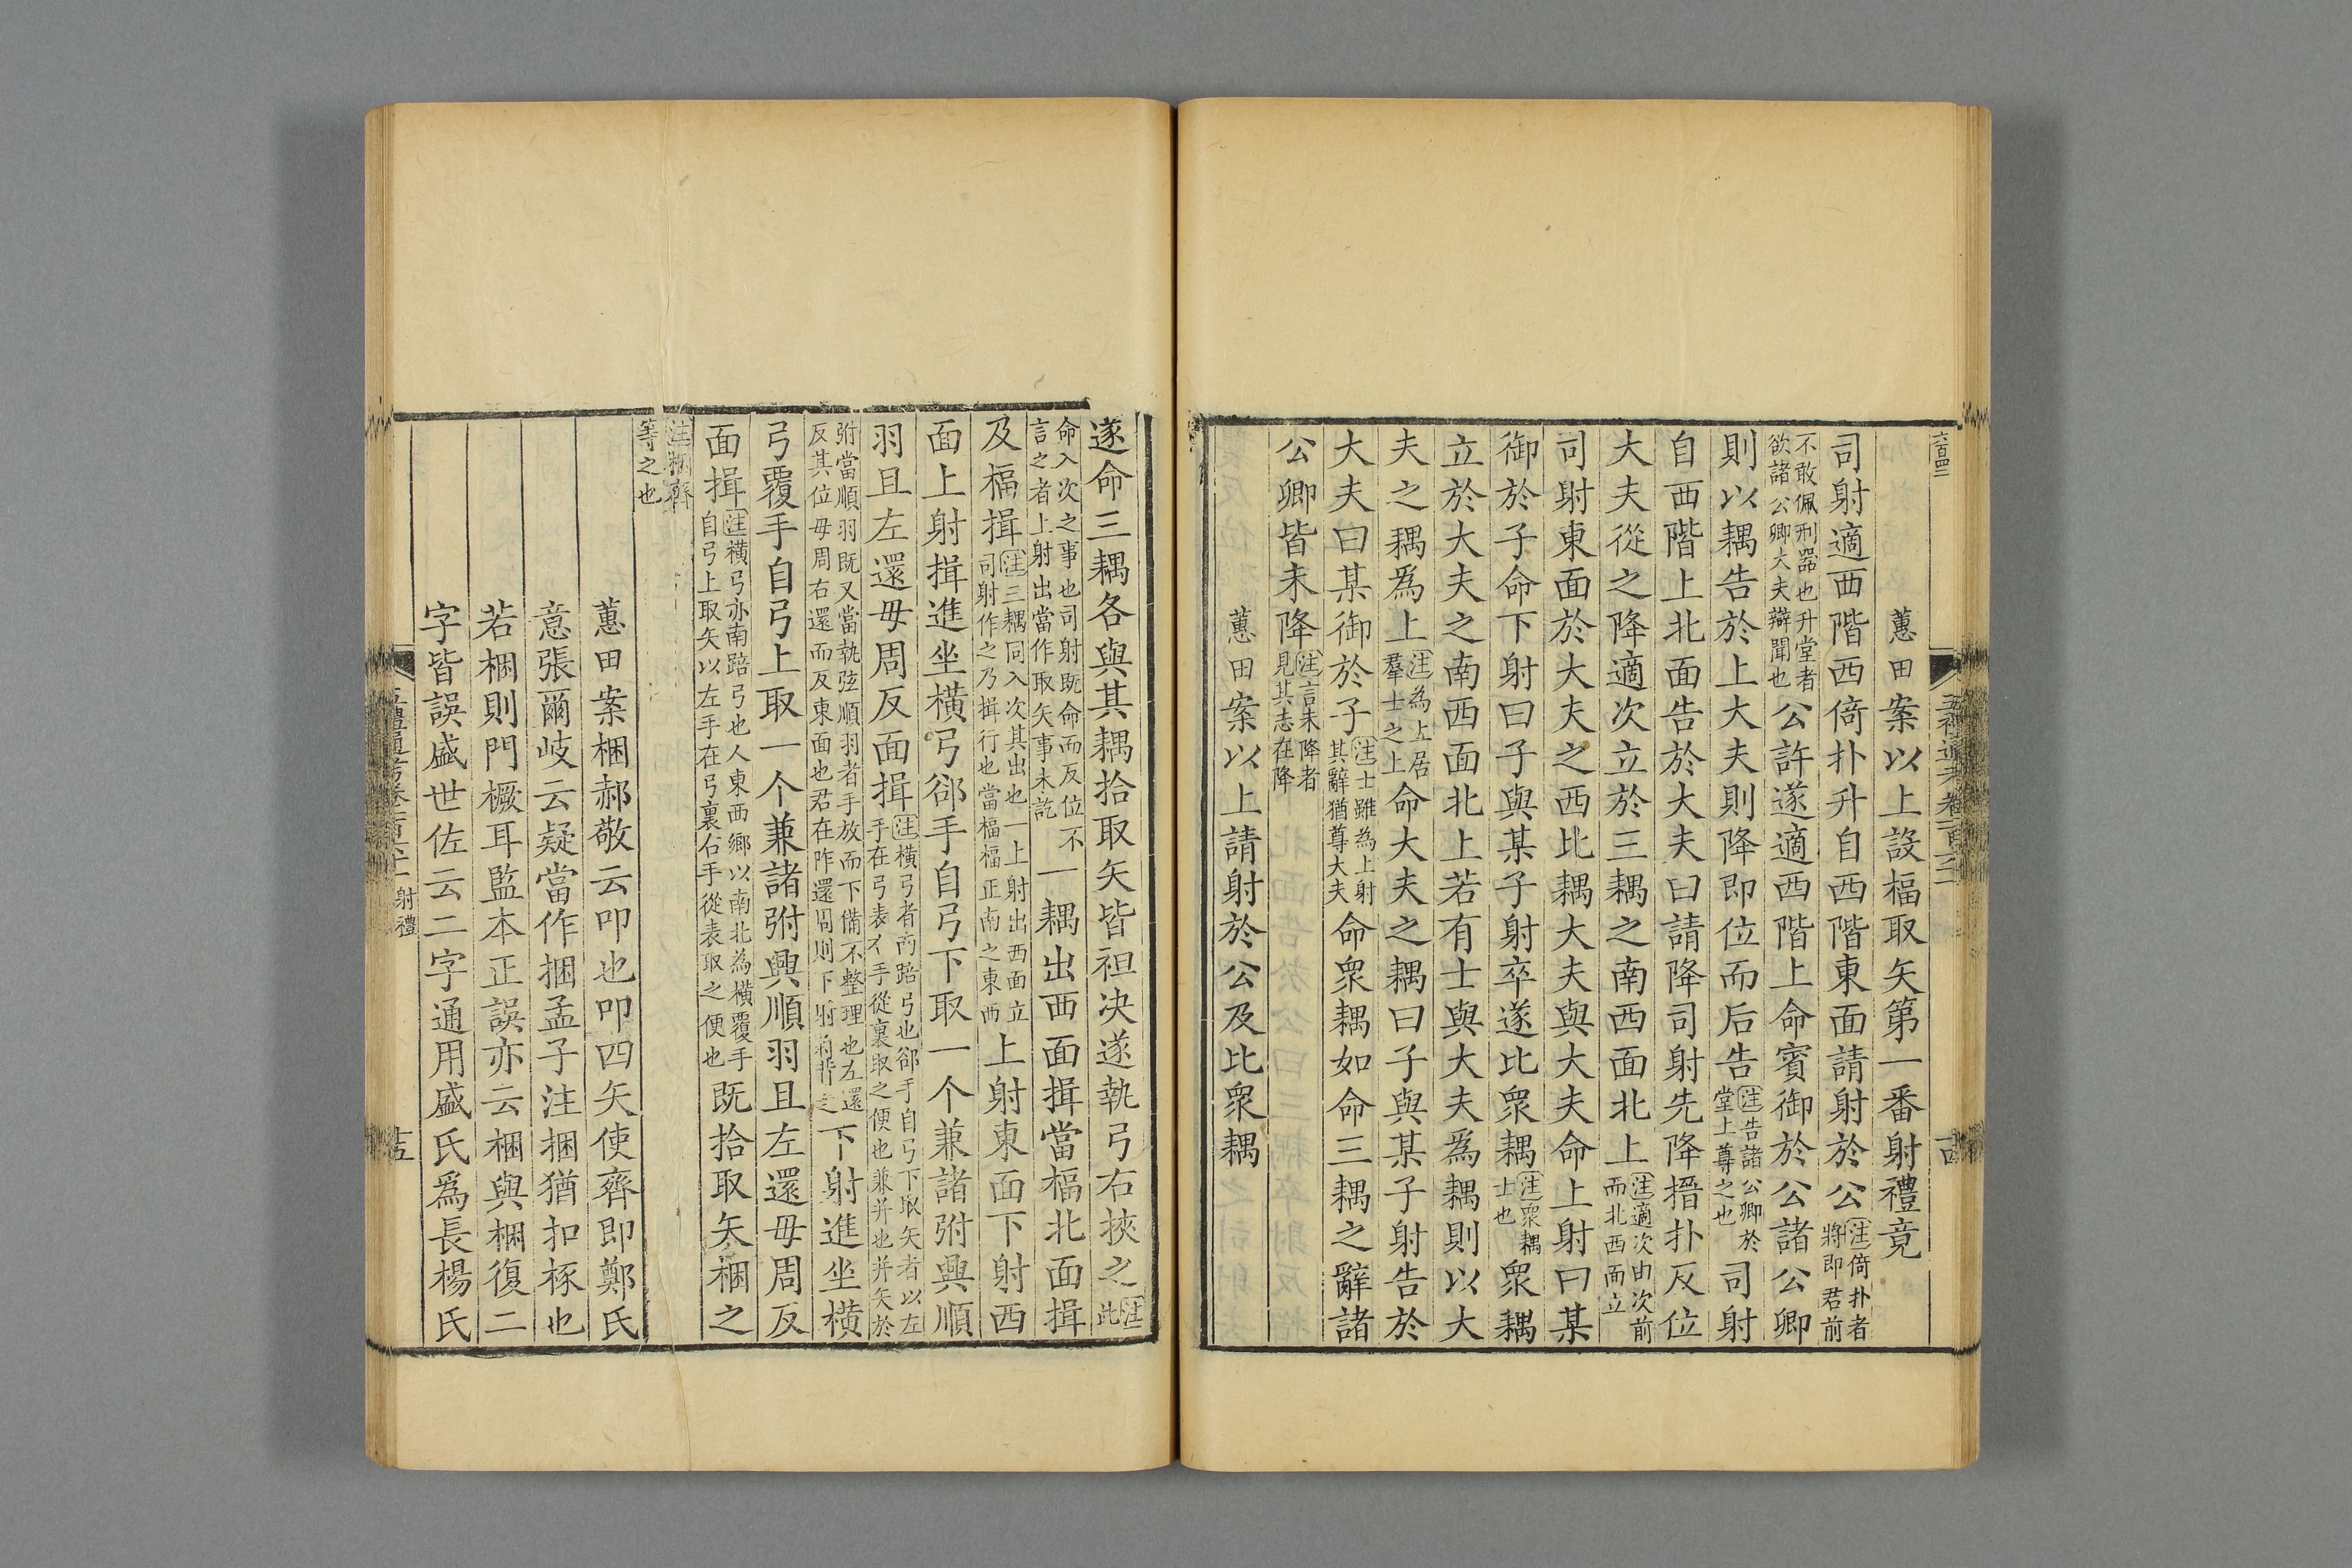 六百四二
蕙田案以上設楅取矢第一番射禮竟
司射適西階西倚扑升自西階東面請射於公注倚扑者將即君前
不敢佩刑器也升堂者欲諸公卿大夫辯聞也公許遂適西階上命賓御於公諸公卿
則以耦告於上大夫則降即位而后告注告諸公卿於堂上尊之也司射
自西階上北面告於大夫曰請降司射先降搢扑反位
大夫從之降適次立於三耦之南西面北上注適次由次前而北西面立
司射東面於大夫之西比耦大夫與大夫命上射曰某
御於子命下射曰子與某子射卒遂比眾耦注眾耦士也眾耦
立於大夫之南西面北上若有士與大夫為耦則以大
夫之耦爲上注為上居羣士之上命大夫之耦曰子與某子射告於
大夫曰某御於子注士雖為上射其辭猶尊大夫命眾耦如命三耦之辭諸
公卿皆未降注言未降者見其志在降
蕙田案以上請射於公及比眾耦
遂命三耦各與其耦拾取矢皆袒决遂執弓右挾之注此
命入次之事也司射既命而反位不言之者上射出當作取矢事未訖一耦出西面揖當楅北面揖
及楅揖注三耦同入次其出也一上射出西面立司射作之乃揖行也當楅楅正南之東西上射東面下射西
面上射揖進坐橫弓郤手自弓下取一个兼諸弣興順
羽且左還毋周反面揖注橫弓者南踣弓也郤手自弓下取矢者以左手在弓表才手從裏取之便也兼并也并矢於
弣當順羽既又當執弦順羽者手放而下備不整理也左還反其位毋周右還而反東面也君在阼還周則下射將背之下射進坐橫
弓覆手自弓上取一个兼諸弣興順羽且左還毋周反
面揖注橫弓亦南踣弓也人東西鄉以南北為橫覆手自弓上取矢以左手在弓裏右手從表取之便也既拾取矢梱之
注梱齊等之也
蕙田案梱郝敬云叩也叩四矢使齊即鄭氏
意張爾岐云疑當作捆孟子注捆猶扣椓也
若梱則門橛耳監本正誤亦云梱與梱復二
字皆誤盛世佐云二字通用盛氏爲長楊氏
射禮